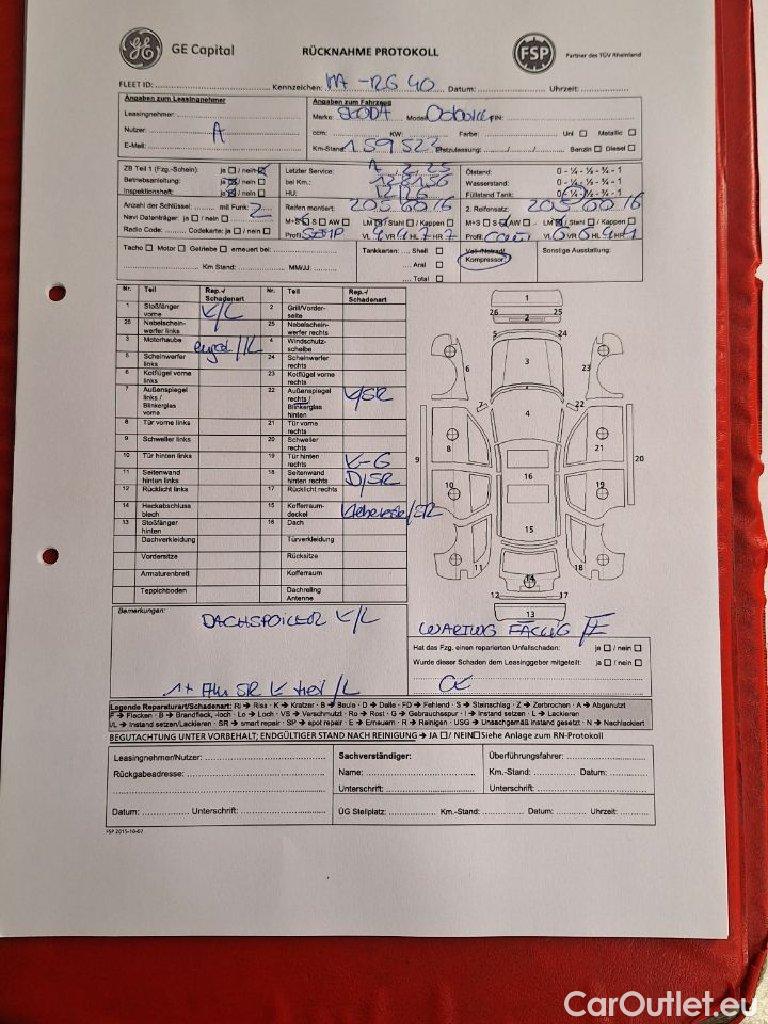 GE Capital RÜCKNAHME PROTOKOLL FSP Partner des TÜV Rheinland
FLEET ID: Kennzeichen: -RG 40 Datum: Uhrzeit:
Angaben zum Leasingnehmer Angaben zum Fahrzeug
Leasingnehmer: Marke: SKODA Modell: Octavia FIN:
Nutzer: A ccm: KW: Farbe: Uni Metallic
E-Mail: Km-Stand: 159523 Erstzulassung: Benzin Diesel
ZB Teil 1 (Fzg.-Schein): ja / nein Letzter Service: Ölstand: 0 - ¼ - ½ - ¾ - 1
Betriebsanleitung: ja / nein bei Km.: Wasserstand: 0 - ¼ - ½ - ¾ - 1
Inspektionsheft: ja / nein HU: 12/26 Füllstand Tank: 0 - ¼ - ½ - ¾ - 1
Anzahl der Schlüssel: mit Funk: 2 Reifen montiert: 205 60 16 2. Reifensatz: 205 60 16
Navi Datenträger: ja / nein M+S S AW LM / Stahl / Kappen M+S S AW LM / Stahl / Kappen
Radio Code: Codekarte: ja / nein Profil VL VR HL HR Profil VL VR HL HR
Tacho Motor Getriebe erneuert bei: Tankkarten: Shell Voll-/Notrad/ Sonstige Ausstattung:
Aral Kompressor
Km Stand: MM/JJ: Total
Nr. Teil Rep.-/ Schadenart Nr. Teil Rep.-/ Schadenart
1 Stoßfänger vorne K/L 2 Grill/Vorder-seite
26 Nebelschein-werfer links 25 Nebelschein-werfer rechts
3 Motorhaube /L 4 Windschutz-scheibe
5 Scheinwerfer links 24 Scheinwerfer rechts
6 Kotflügel vorne links 23 Kotflügel vorne rechts
7 Außenspiegel links / Blinkerglas vorne 22 Außenspiegel rechts / Blinkerglas hinten K/SR
8 Tür vorne links 21 Tür vorne rechts
9 Schweller links 20 Schweller rechts
10 Tür hinten links 19 Tür hinten rechts K-G
11 Seitenwand hinten links 18 Seitenwand hinten rechts D/SR
12 Rücklicht links 17 Rücklicht rechts
14 Heckabschluss blech 15 Kofferraum-deckel
13 Stoßfänger hinten 16 Dach
Dachverkleidung Türverkleidung
Vordersitze Rücksitze
Armaturenbrett Kofferraum
Teppichboden Dachreling Antenne
1
26 2 25
5 24
6 3 23
7 22
4
8 21
9 20
10 16 19
15
11 18
14
12 17
13
Bemerkungen:
DACHSPOILER K/L
WARTUNG FÄLLIG
Hat das Fzg. einen reparierten Unfallschaden: ja / nein
Wurde dieser Schaden dem Leasinggeber mitgeteilt: ja / nein
Legende Reparaturart/Schadenart: Ri → Riss · K → Kratzer · B → Beule · D → Delle · FD → Fehlend · S → Steinschlag · Z → Zerbrochen · A → Abgenutzt
F → Flecken · B → Brandfleck, -loch · Lo → Loch · VS → Verschmutzt · Ro → Rost · G → Gebrauchsspur · I → Instand setzen · L → Lackieren
I/L → Instand setzen/Lackieren · SR → smart repair · SP → spot repair · E → Erneuern · R → Reinigen · USG → Unsachgemäß instand gesetzt · N → Nachlackiert
BEGUTACHTUNG UNTER VORBEHALT; ENDGÜLTIGER STAND NACH REINIGUNG → JA / NEIN Siehe Anlage zum RN-Protokoll
Leasingnehmer/Nutzer: Sachverständiger: Überführungsfahrer:
Rückgabeadresse: Name: Km.-Stand: Datum:
Unterschrift: Unterschrift:
Datum: Unterschrift: ÜG Stellplatz: Km.-Stand: Datum: Uhrzeit:
FSP 2015-10-07
CarOutlet.eu